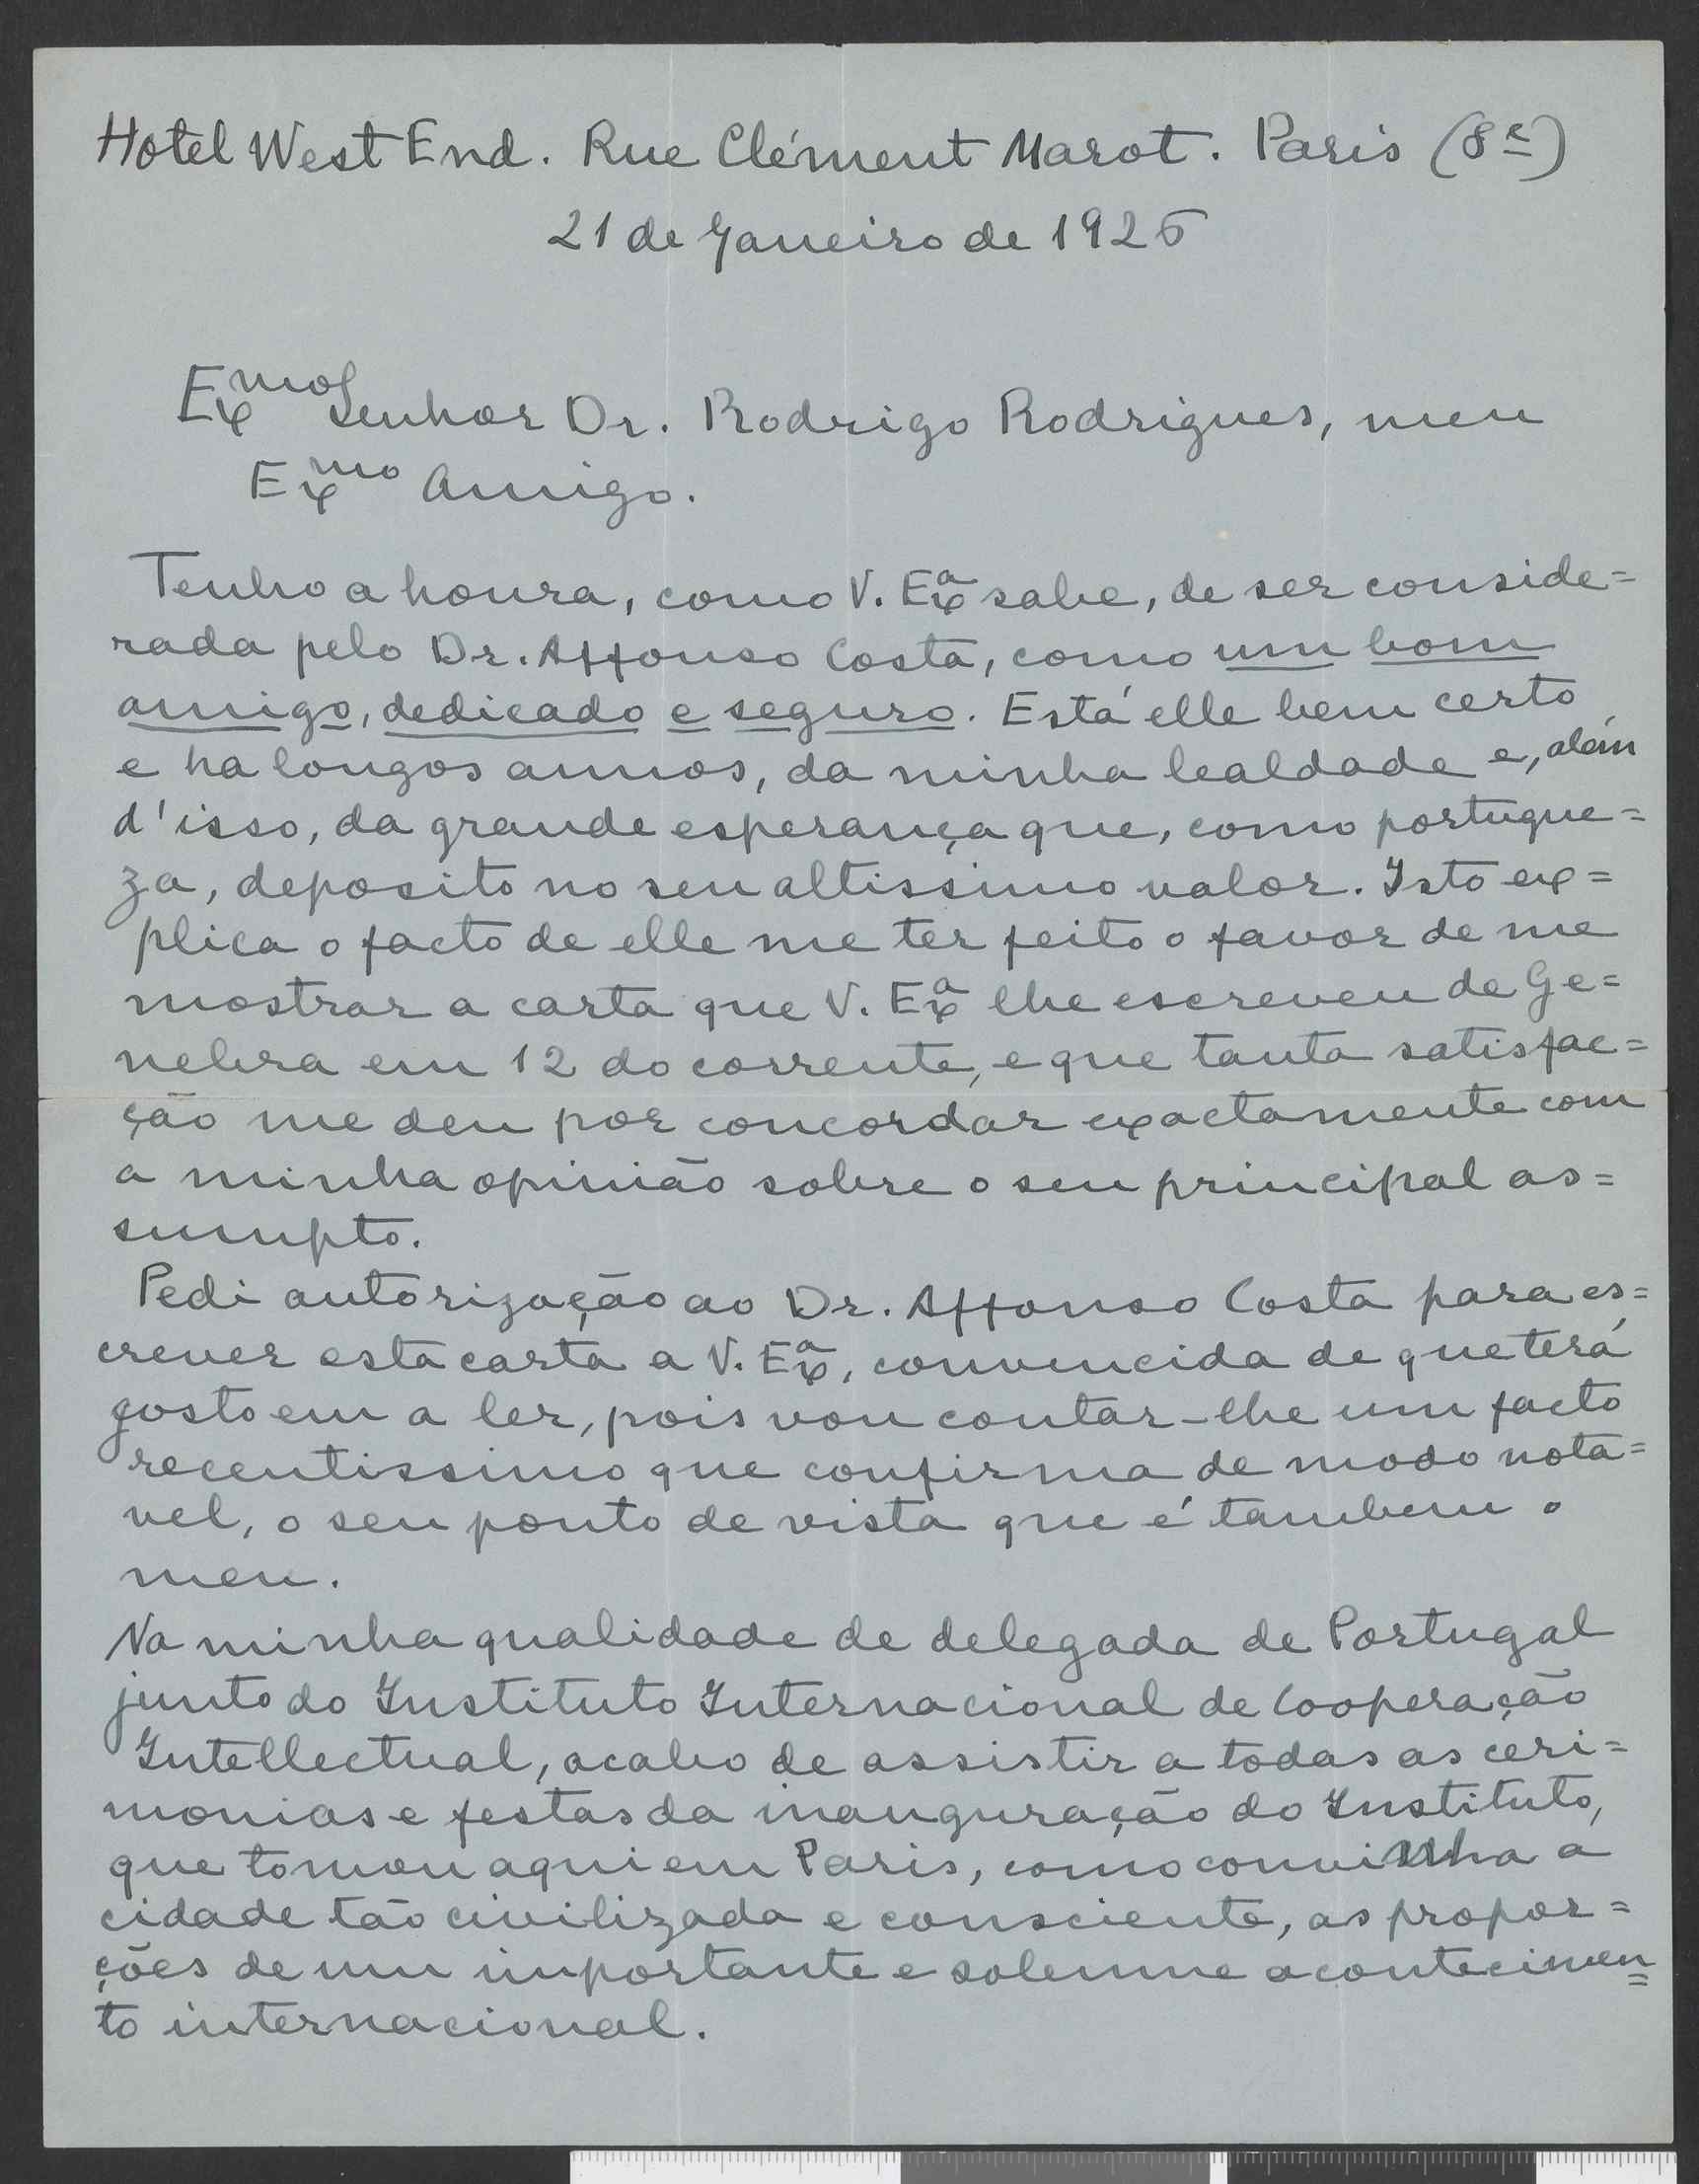 Hotel West End. Rue Clément Marot. Paris (8e)
21 de Janeiro de 1926
Exmo Senhor Dr. Rodrigo Rodrigues, meu
Exmo Amigo.
Tenho a honra, como V. Exa sabe, de ser conside=
rada pelo Dr. Affonso Costa, como um bom
amigo, dedicado e seguro. Está elle bem certo
e ha longos annos, da minha lealdade e, além
d'isso, da grande esperança que, como portugue=
za, deposito no seu altissimo valor. Isto ex=
plica o facto de elle me ter feito o favor de me
mostrar a carta que V. Exa lhe escreveu de Ge=
nebra em 12 do corrente, e que tanta satisfac=
ção me deu por concordar exactamente com
a minha opinião sobre o seu principal as=
sumpto.
Pedi autorização ao Dr. Affonso Costa para es=
crever esta carta a V. Exa, convencida de que terá
gosto em a ler, pois vou contar-lhe um facto
recentissimo que confirma de modo nota=
vel, o seu ponto de vista que é tambem o
meu.
Na minha qualidade de delegada de Portugal
junto do Instituto Internacional de Cooperação
Intellectual, acabo de assistir a todas as ceri=
monias e festas da inauguração do Instituto,
que tomou aqui em Paris, como convinha a
cidade tão civilizada e consciente, as propor=
ções de um importante e solemne acontecimen=
to internacional.